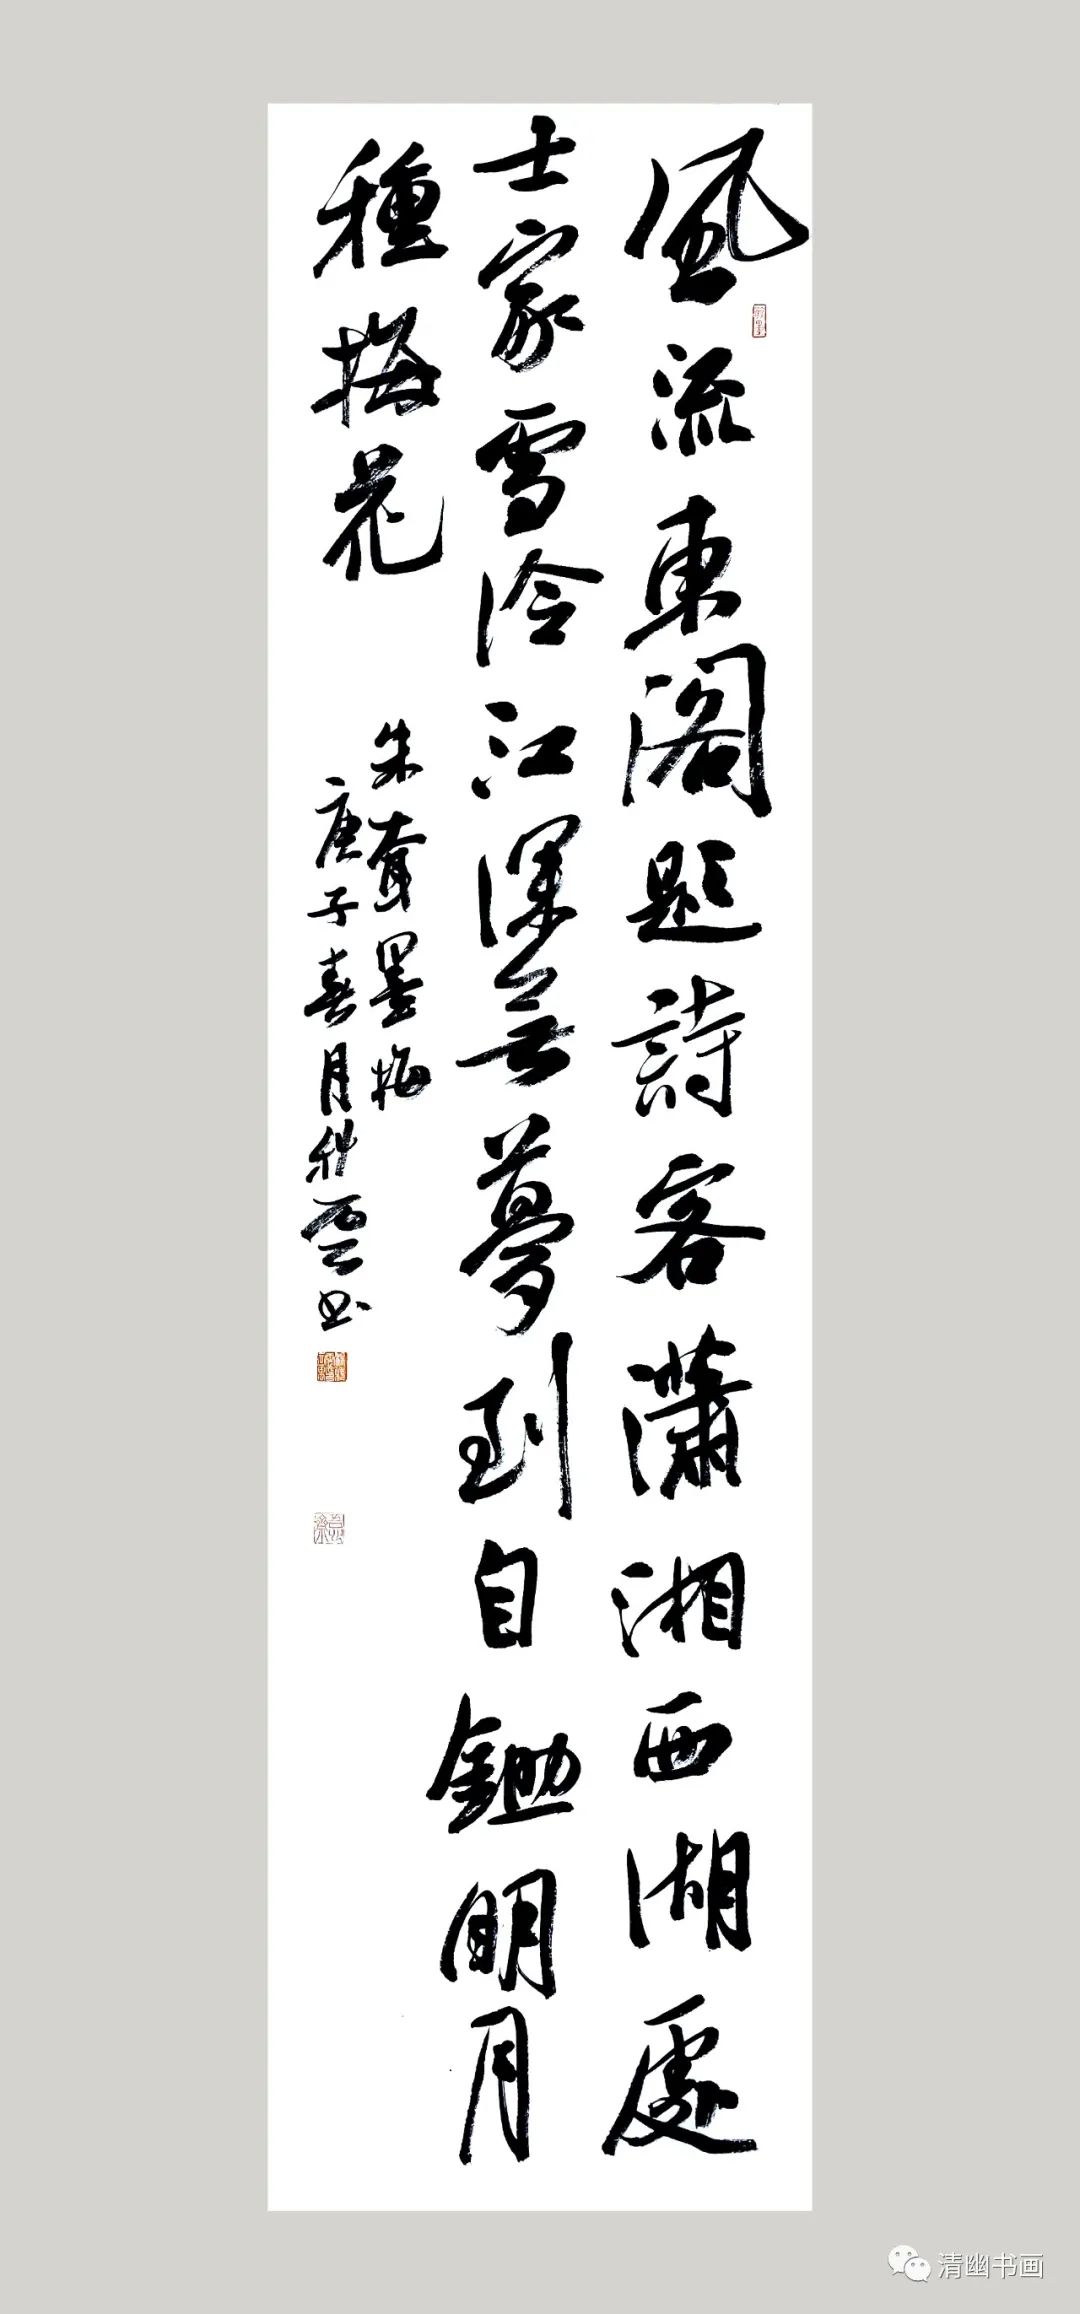 風流東閣題詩客瀟湘西湖處
士家雪冷江深無夢到自鋤明月
種梅花
朱耷墨梅
庚子春月雲书
清幽书画